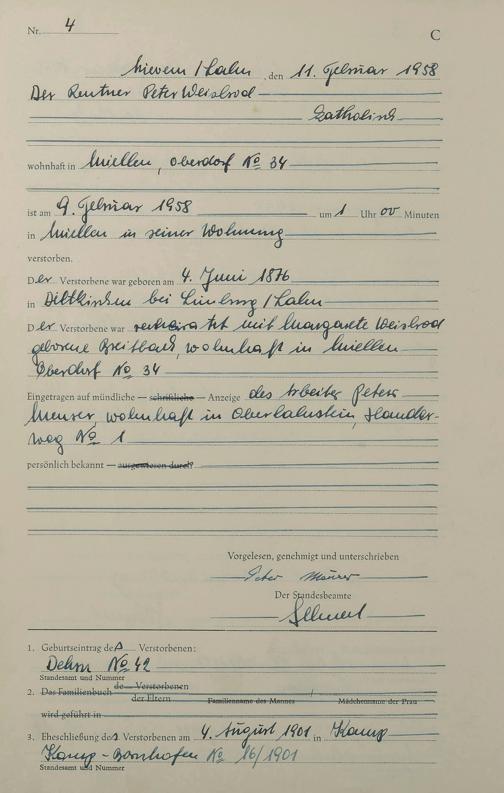 Nr. 4
C
Nievern / Lahn, den 11. Februar 1958
Der Rentner Peter Weisbrod
Katholisch
wohnhaft in Miellen, Oberdorf No 34
ist am 9. Februar 1958 um 1 Uhr 00 Minuten
in Miellen in seiner Wohnung
verstorben.
Der Verstorbene war geboren am 4. Juni 1876
in Dietkirchen bei Limburg / Lahn
Der Verstorbene war verheiratet mit Margarete Weisbrod
geborene Breitbach, wohnhaft in Miellen
Oberdorf No 34
Eingetragen auf mündliche — schriftliche — Anzeige des Arbeiter Peter
wohnhaft in Oberlahnstein,
weg No 1
persönlich bekannt — ausgewiesen durch
Vorgelesen, genehmigt und unterschrieben
Peter
Der Standesbeamte
1. Geburtseintrag des Verstorbenen:
Dehrn No 42
Standesamt und Nummer
2. Das Familienbuch de Verstorbenen
der Eltern Familienname des Mannes / Mädchenname der Frau
wird geführt in
3. Eheschließung des Verstorbenen am 4. August 1901 in Kamp
Kamp-Bornhofen No 16/1901
Standesamt und Nummer